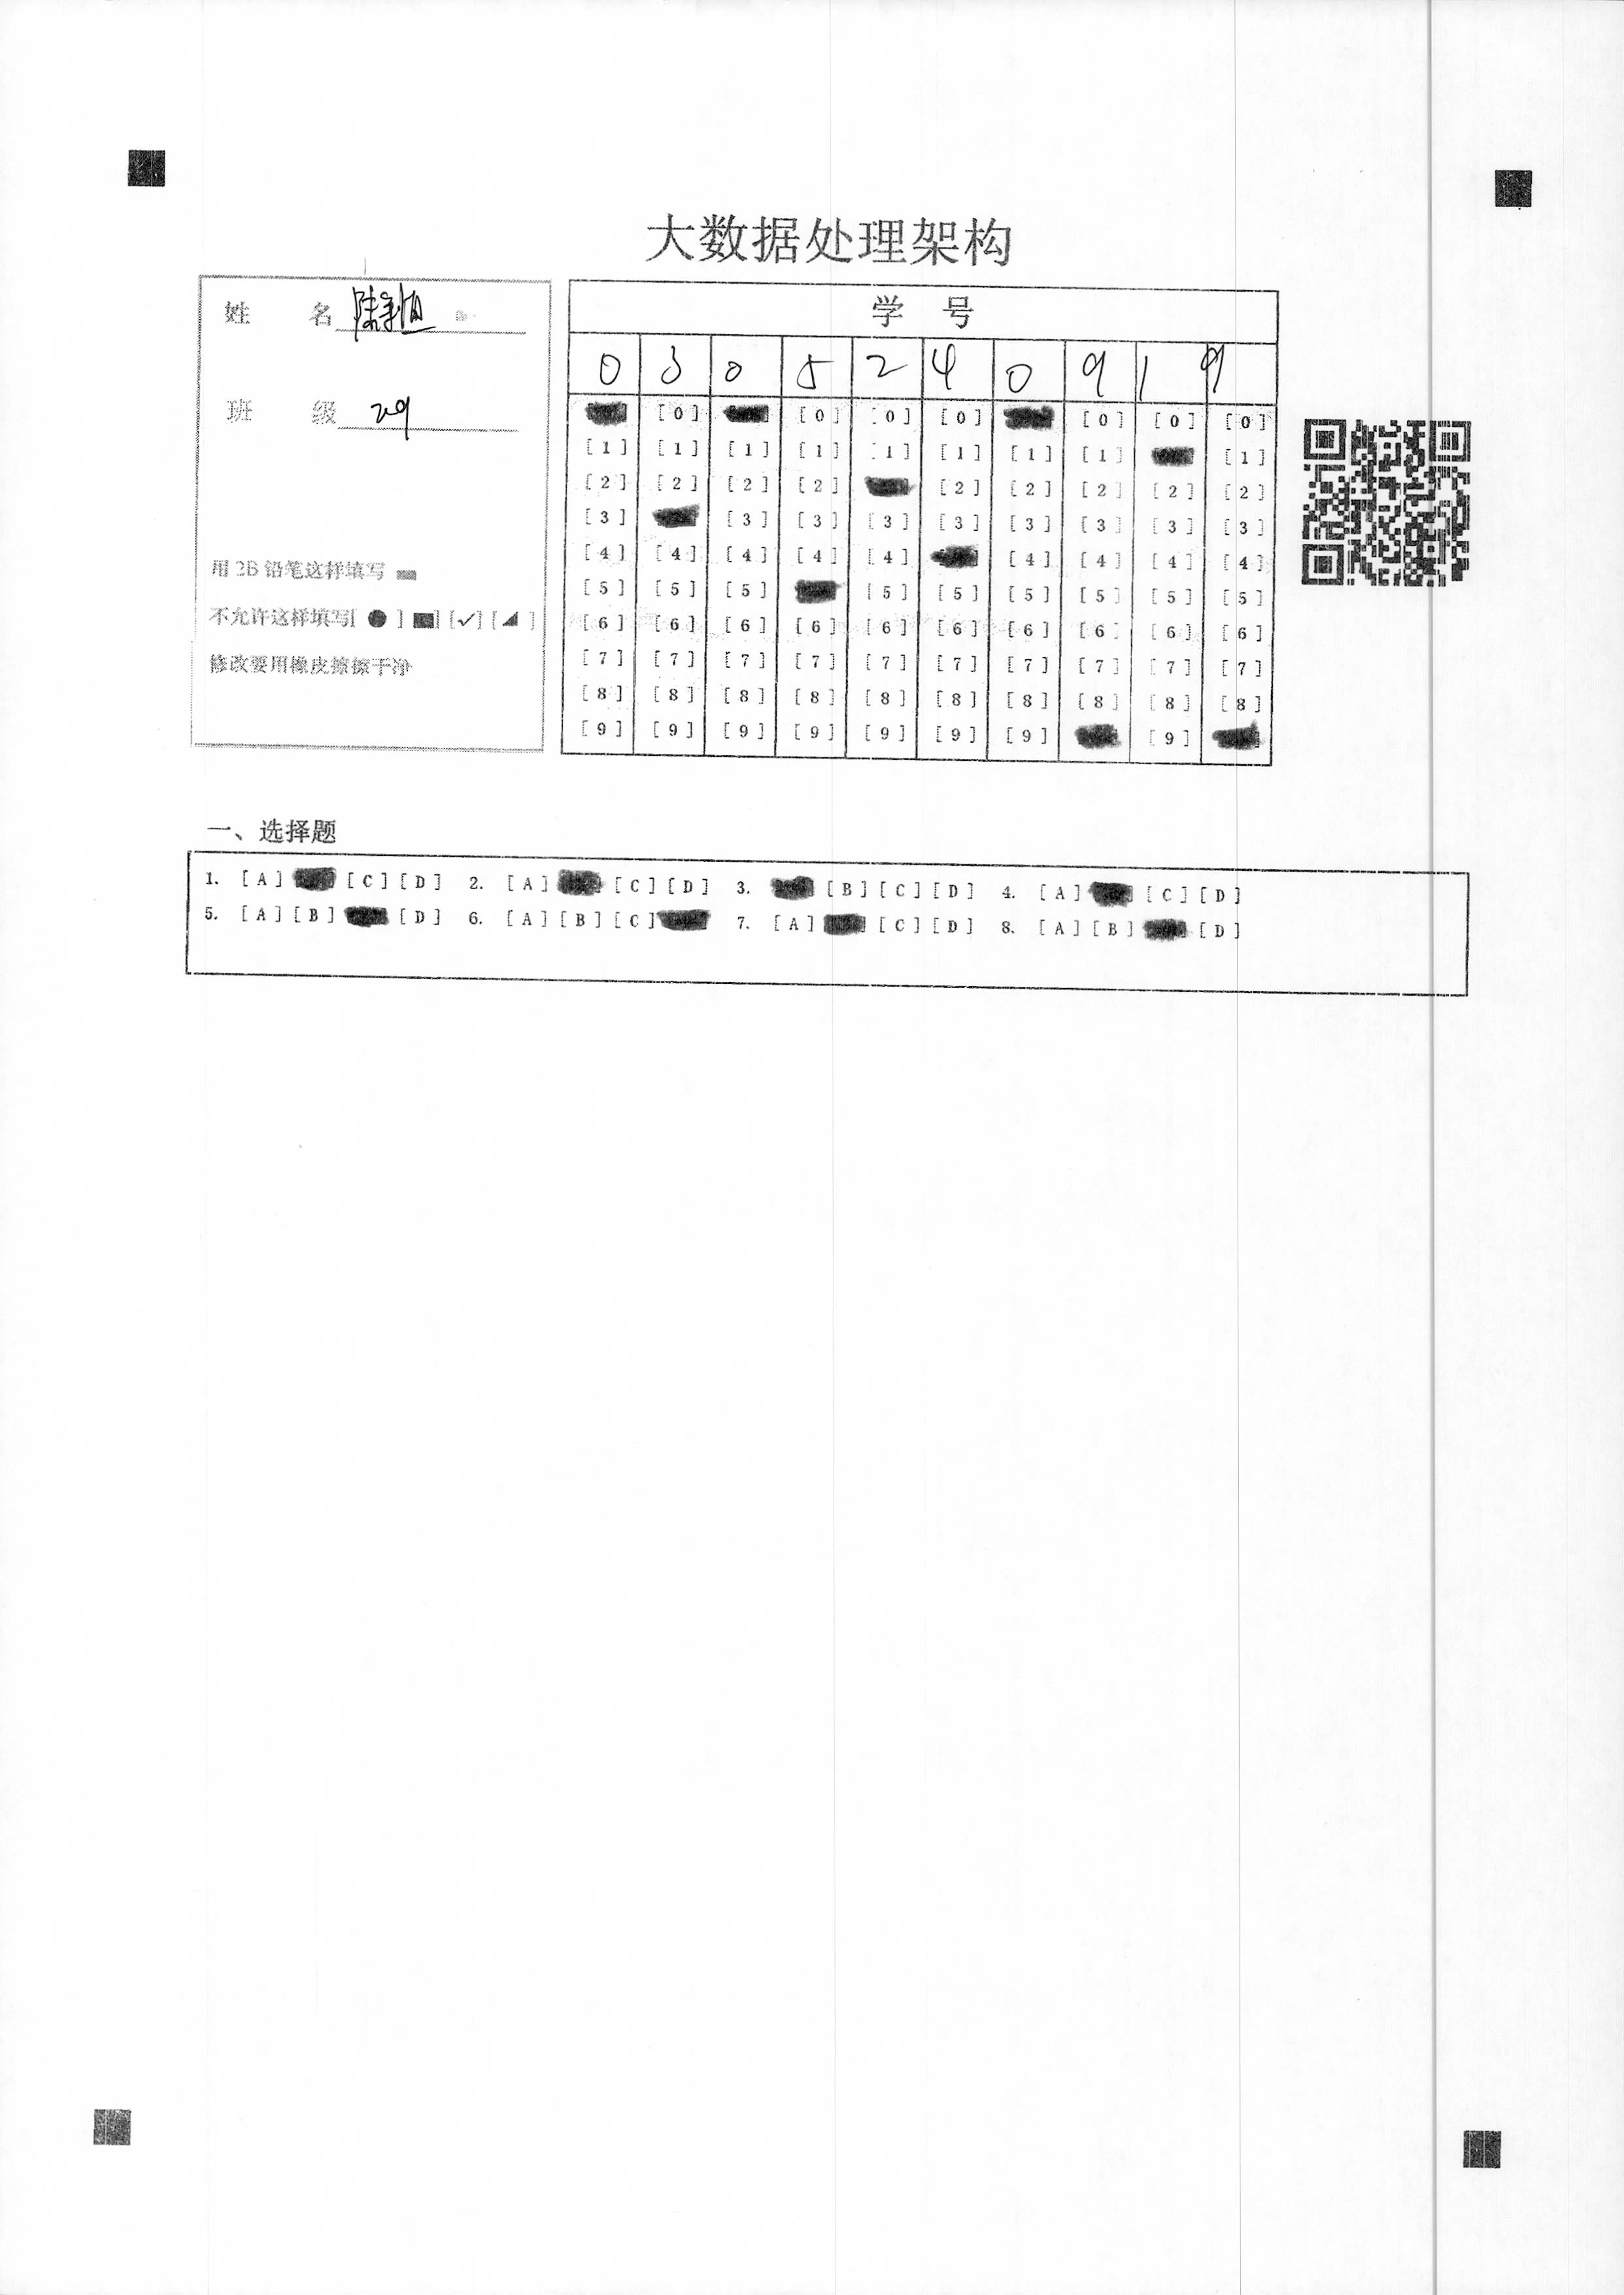 大数据处理架构
姓 名
班 级 209
用 2B 铅笔这样填写
不允许这样填写[ ● ] ■] [✓] [◢ ]
修改要用橡皮擦擦干净
学 号
0 3 0 5 2 4 0 9 1 9
[0] [0] [0] [0] [0] [0] [0]
[1] [1] [1] [1] [1] [1] [1] [1] [1]
[2] [2] [2] [2] [2] [2] [2] [2] [2]
[3] [3] [3] [3] [3] [3] [3] [3] [3]
[4] [4] [4] [4] [4] [4] [4] [4] [4]
[5] [5] [5] [5] [5] [5] [5] [5] [5]
[6] [6] [6] [6] [6] [6] [6] [6] [6] [6]
[7] [7] [7] [7] [7] [7] [7] [7] [7] [7]
[8] [8] [8] [8] [8] [8] [8] [8] [8] [8]
[9] [9] [9] [9] [9] [9] [9] [9]
一、选择题
1. [A] [C] [D] 2. [A] [C] [D] 3. [B] [C] [D] 4. [A] [C] [D]
5. [A] [B] [D] 6. [A] [B] [C] 7. [A] [C] [D] 8. [A] [B] [D]